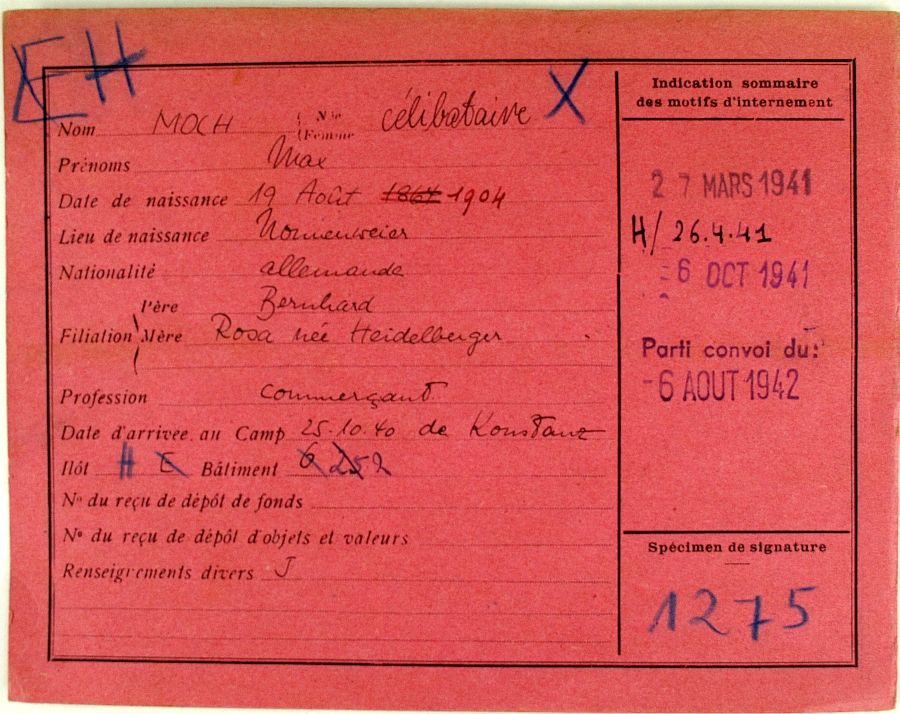 EH
Nom MOCH { Née (Femme célibataire X
Prénoms Max
Date de naissance 19 Août 1867 1904
Lieu de naissance Nonnenweier
Nationalité allemande
Père Bernhard
Filiation Mère Rosa née Heidelberger
Profession commerçant
Date d'arrivée au Camp 25.10.40 de Konstanz
Ilôt H E Bâtiment 6 252
No du reçu de dépôt de fonds
No du reçu de dépôt d'objets et valeurs
Renseignements divers J
Indication sommaire
des motifs d'internement
27 MARS 1941
H/ 26.4.41
-6 OCT 1941
Parti convoi du:
-6 AOUT 1942
Spécimen de signature
1275